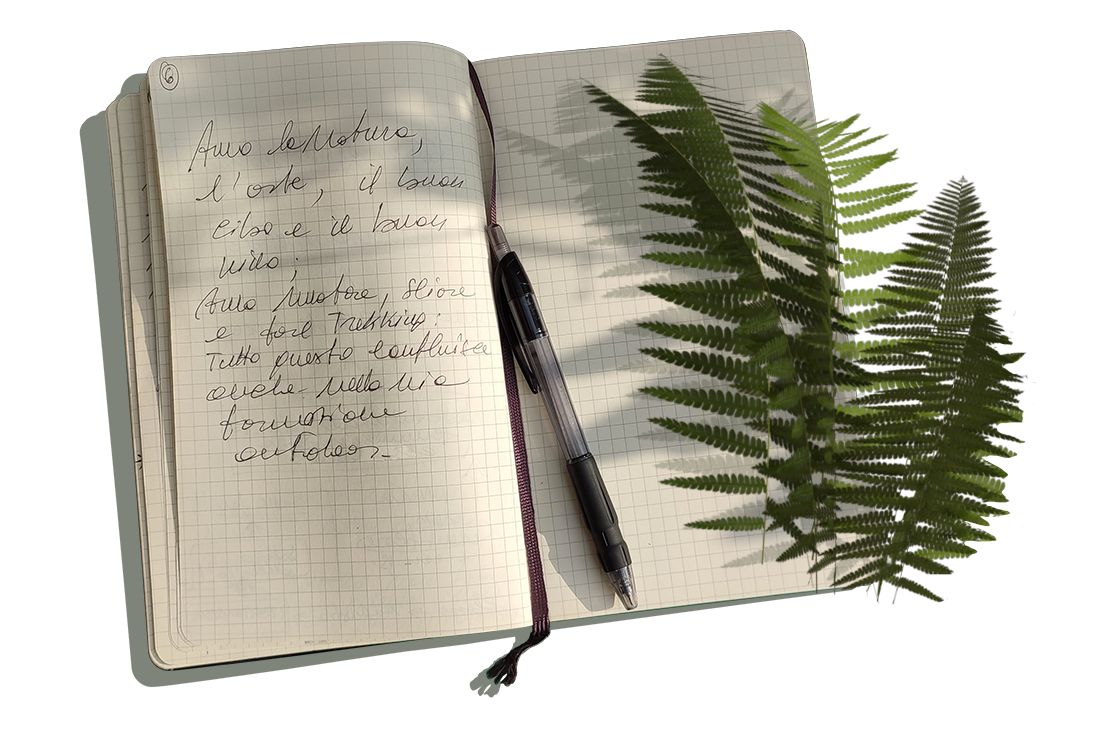 6
Amo la Natura,
l'arte, il buon
cibo e il buon
vino;
Amo nuotare, sciare
e fare Trekking:
Tutto questo confluisce
anche nella mia
formazione
outdoor.